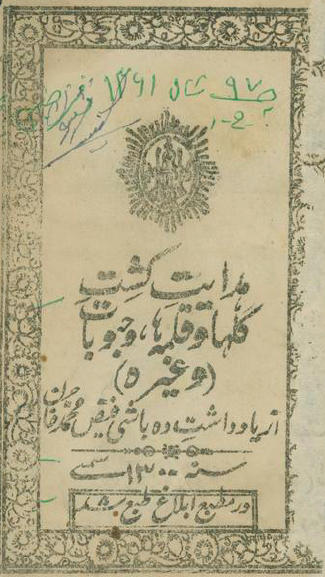 هدایت کشت
گلها و قلمه‌ها، و حبوبات
(وغیره)
از یادداشت ده باشی فیض محمد خان
سنه ۱۳۰۰ شمسی
در مطبع ابلاغ طبع شد